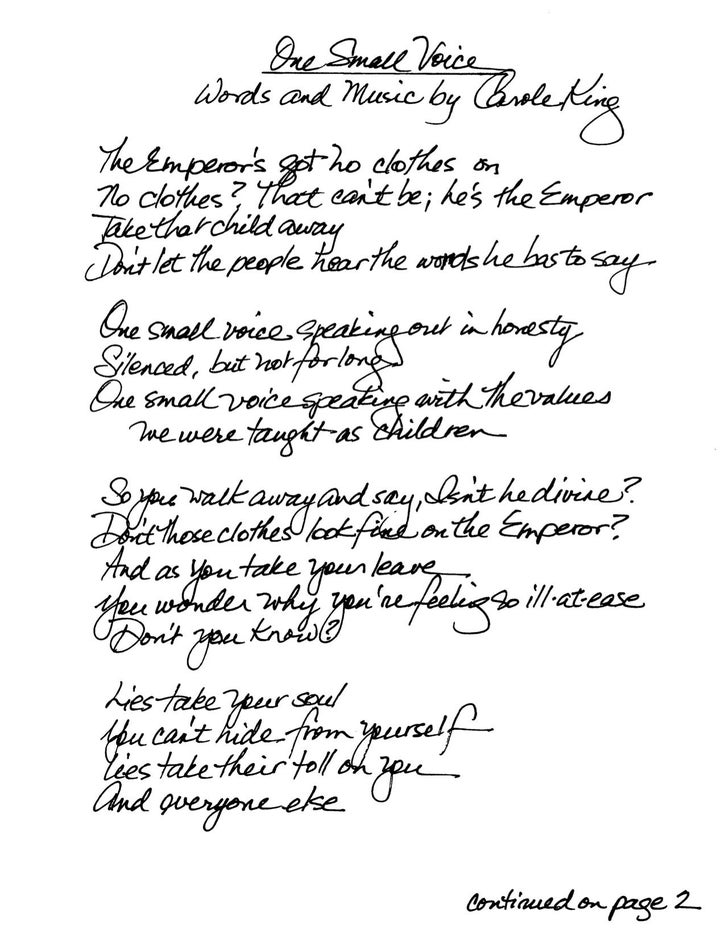 One Small Voice
Words and Music by Carole King
The Emperor's got no clothes on
No clothes? That can't be; he's the Emperor
Take that child away
Don't let the people hear the words he has to say
One small voice speaking out in honesty
Silenced, but not for long
One small voice speaking with the values
we were taught as children
So you walk away and say, Isn't he divine?
Don't those clothes look fine on the Emperor?
And as you take your leave
You wonder why you're feeling so ill-at-ease
Don't you know?
Lies take your soul
You can't hide from yourself
Lies take their toll on you
And everyone else
continued on page 2